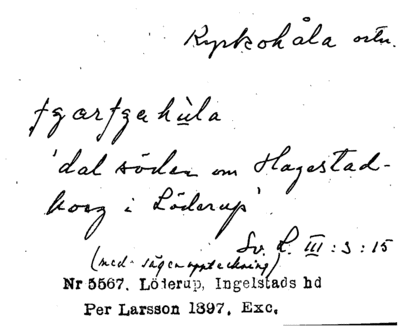 Kyrkohåla ortn.
ɟɡærɟɡehùla
'dal söder om Hagestad-
borg i Löderup'.
Sv. L. III : 3 : 15
(med sägenuppteckning)
Nr 5567. Löderup, Ingelstads hd
Per Larsson 1897. Exc.